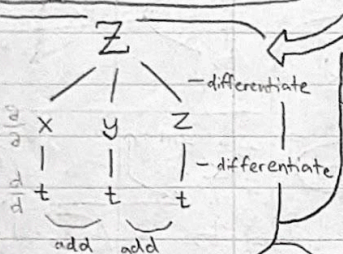 Z
- differentiate
∂/∂ x y z
- differentiate
d/d t t t
add add